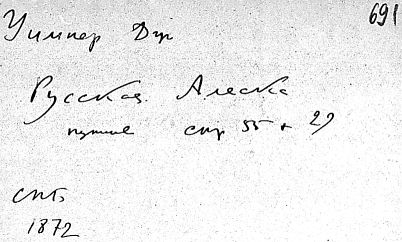 691
Уимпер Дж
Русская Аляска
стр 55 + 29
СПБ
1872